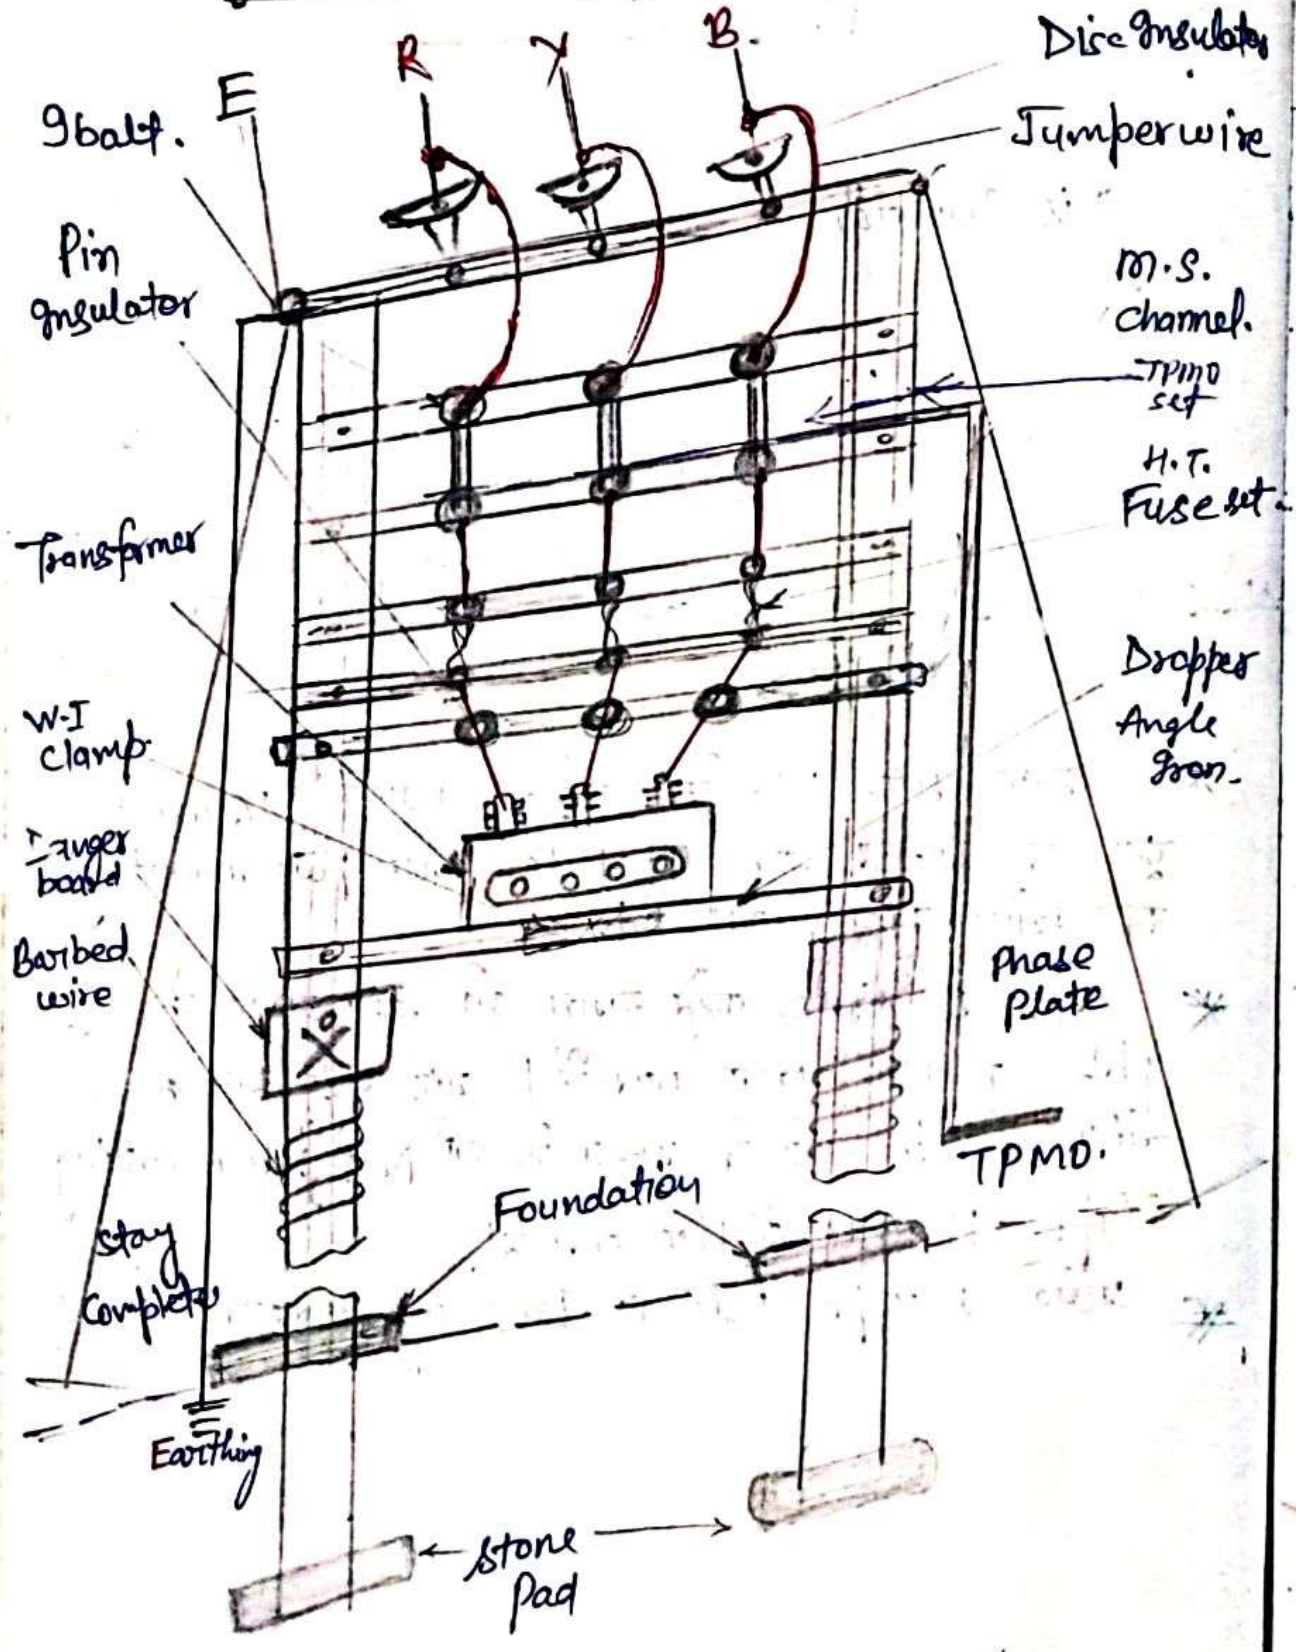 R
Y
B.
E
Disc Insulator
Jumper wire
Ibolt.
Pin
Insulator
M.S.
Channel.
TPMO
set
H.T.
Fuse set.
Transformer
Dropper
Angle
Iron.
W-I
Clamp.
Danger
board
Barbed
wire
Phase
Plate
TPMO.
Foundation
Stay
Complete
Earthing
Stone
Pad